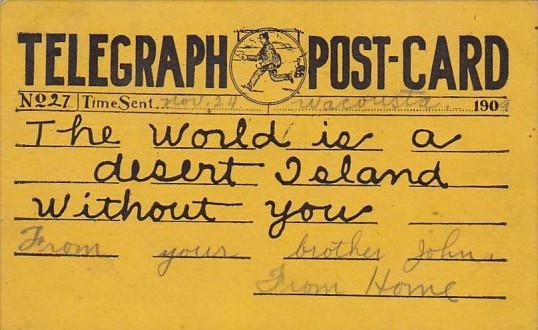 TELEGRAPH POST-CARD
No 27 Time Sent Nov. 24 Wacousta 1909
The World is a
desert Island
Without you
From your brother John.
From Home